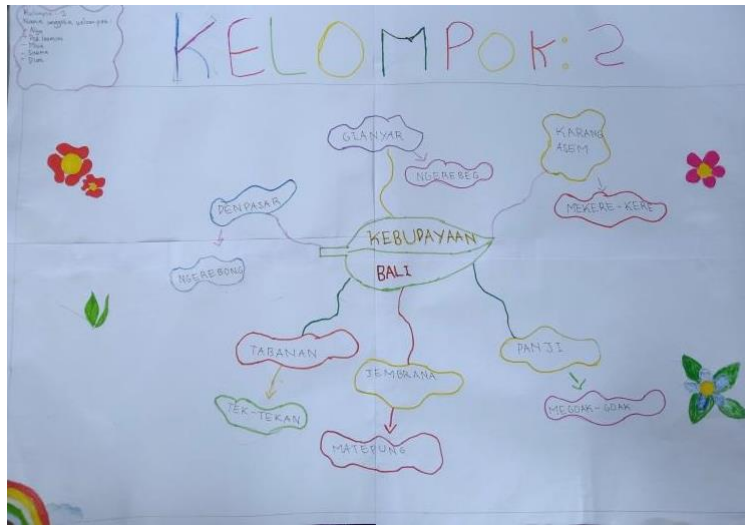 Kelompok : 2
Nama anggota kelompok :
KELOMPOK: 2
GIANYAR
NGEREBEG
KARANG
ASEM
MEKERE-KERE
DENPASAR
NGEREBONG
KEBUPAYAAN
BALI
TABANAN
TEK-TEKAN
JEMBRANA
MATEPUNG
PANJI
MEGOAK-GOAK